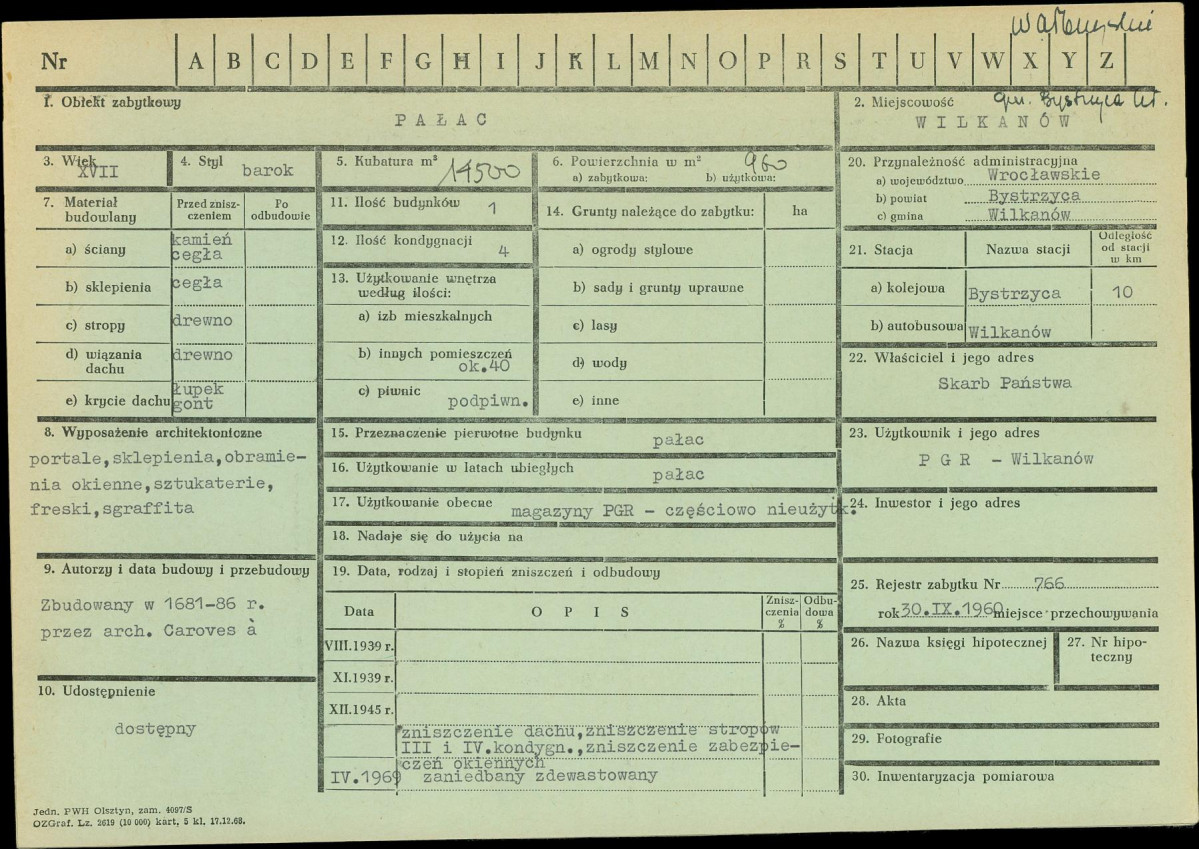 Wałbrzyskie
Nr A B C D E F G H I J K L M N O P R S T U V W X Y Z
1. Obiekt zabytkowy
PAŁAC
2. Miejscowość
gm. Bystrzyca Kł.
WILKANÓW
3. Wiek
XVII
4. Styl
barok
5. Kubatura m³
14500
6. Powierzchnia w m²
960
a) zabytkowa: b) użytkowa:
7. Materiał budowlany
Przed znisz-
czeniem
Po
odbudowie
a) ściany
kamień
cegła
b) sklepienia
cegła
c) stropy
drewno
d) wiązania
dachu
drewno
e) krycie dachu
łupek
gont
8. Wyposażenie architektoniczne
portale,sklepienia,obramie-
nia okienne,sztukaterie,
freski,sgraffita
9. Autorzy i data budowy i przebudowy
Zbudowany w 1681-86 r.
przez arch. Caroves à
10. Udostępnienie
dostępny
11. Ilość budynków
1
12. Ilość kondygnacji
4
13. Użytkowanie wnętrza
według ilości:
a) izb mieszkalnych
b) innych pomieszczeń
ok.40
c) piwnic
podpiwn.
14. Grunty należące do zabytku:
ha
a) ogrody stylowe
b) sady i grunty uprawne
c) lasy
d) wody
e) inne
15. Przeznaczenie pierwotne budynku
pałac
16. Użytkowanie w latach ubiegłych
pałac
17. Użytkowanie obecne
magazyny PGR - częściowo nieużytk.
18. Nadaje się do użycia na
19. Data, rodzaj i stopień zniszczeń i odbudowy
Data
OPIS
Znisz-
czenia
%
Odbu-
dowa
%
VIII.1939 r.
XI.1939 r.
XII.1945 r.
zniszczenie dachu,zniszczenie stropów
III i IV.kondygn.,zniszczenie zabezpie-
czeń okiennych
IV.1969 zaniedbany zdewastowany
20. Przynależność administracyjna
a) województwo Wrocławskie
b) powiat Bystrzyca
c) gmina Wilkanów
21. Stacja
Nazwa stacji
Odległość
od stacji
w km
a) kolejowa
Bystrzyca
10
b) autobusowa
Wilkanów
22. Właściciel i jego adres
Skarb Państwa
23. Użytkownik i jego adres
P G R - Wilkanów
24. Inwestor i jego adres
25. Rejestr zabytku Nr 766
rok 30.IX.1960 miejsce przechowywania
26. Nazwa księgi hipotecznej
27. Nr hipo-
teczny
28. Akta
29. Fotografie
30. Inwentaryzacja pomiarowa
Jedn. PWH Olsztyn, zam. 4097/S
OZGraf. Lz. 2619 (10 000) kart, 5 kl. 17.12.68.